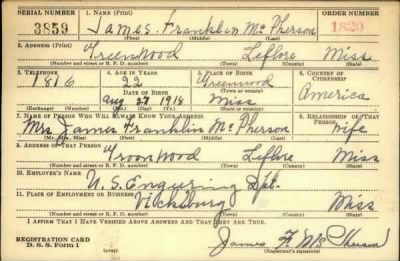 SERIAL NUMBER 1. NAME (Print) ORDER NUMBER
3859 James Franklin McPherson 1820
(First) (Middle) (Last)
2. ADDRESS (Print)
Greenwood Leflore Miss
(Number and street or R. F. D. number) (Town) (County) (State)
3. TELEPHONE 4. AGE IN YEARS 5. PLACE OF BIRTH 6. COUNTRY OF CITIZENSHIP
1816 22 Greenwood
DATE OF BIRTH (Town or county) America
Aug 27 1918 Miss
(Exchange) (Number) (Mo.) (Day) (Yr.) (State or country)
7. NAME OF PERSON WHO WILL ALWAYS KNOW YOUR ADDRESS 8. RELATIONSHIP OF THAT PERSON
Mrs James Franklin McPherson Wife
(Mr., Mrs., Miss) (First) (Middle) (Last)
9. ADDRESS OF THAT PERSON
Greenwood Leflore Miss
(Number and street or R. F. D. number) (Town) (County) (State)
10. EMPLOYER'S NAME
U.S. Engineering Dpt.
11. PLACE OF EMPLOYMENT OR BUSINESS
Vicksburg Miss
(Number and street or R. F. D. number) (Town) (County) (State)
I AFFIRM THAT I HAVE VERIFIED ABOVE ANSWERS AND THAT THEY ARE TRUE.
REGISTRATION CARD
D. S. S. Form 1 James F. McPherson
(Registrant's signature)